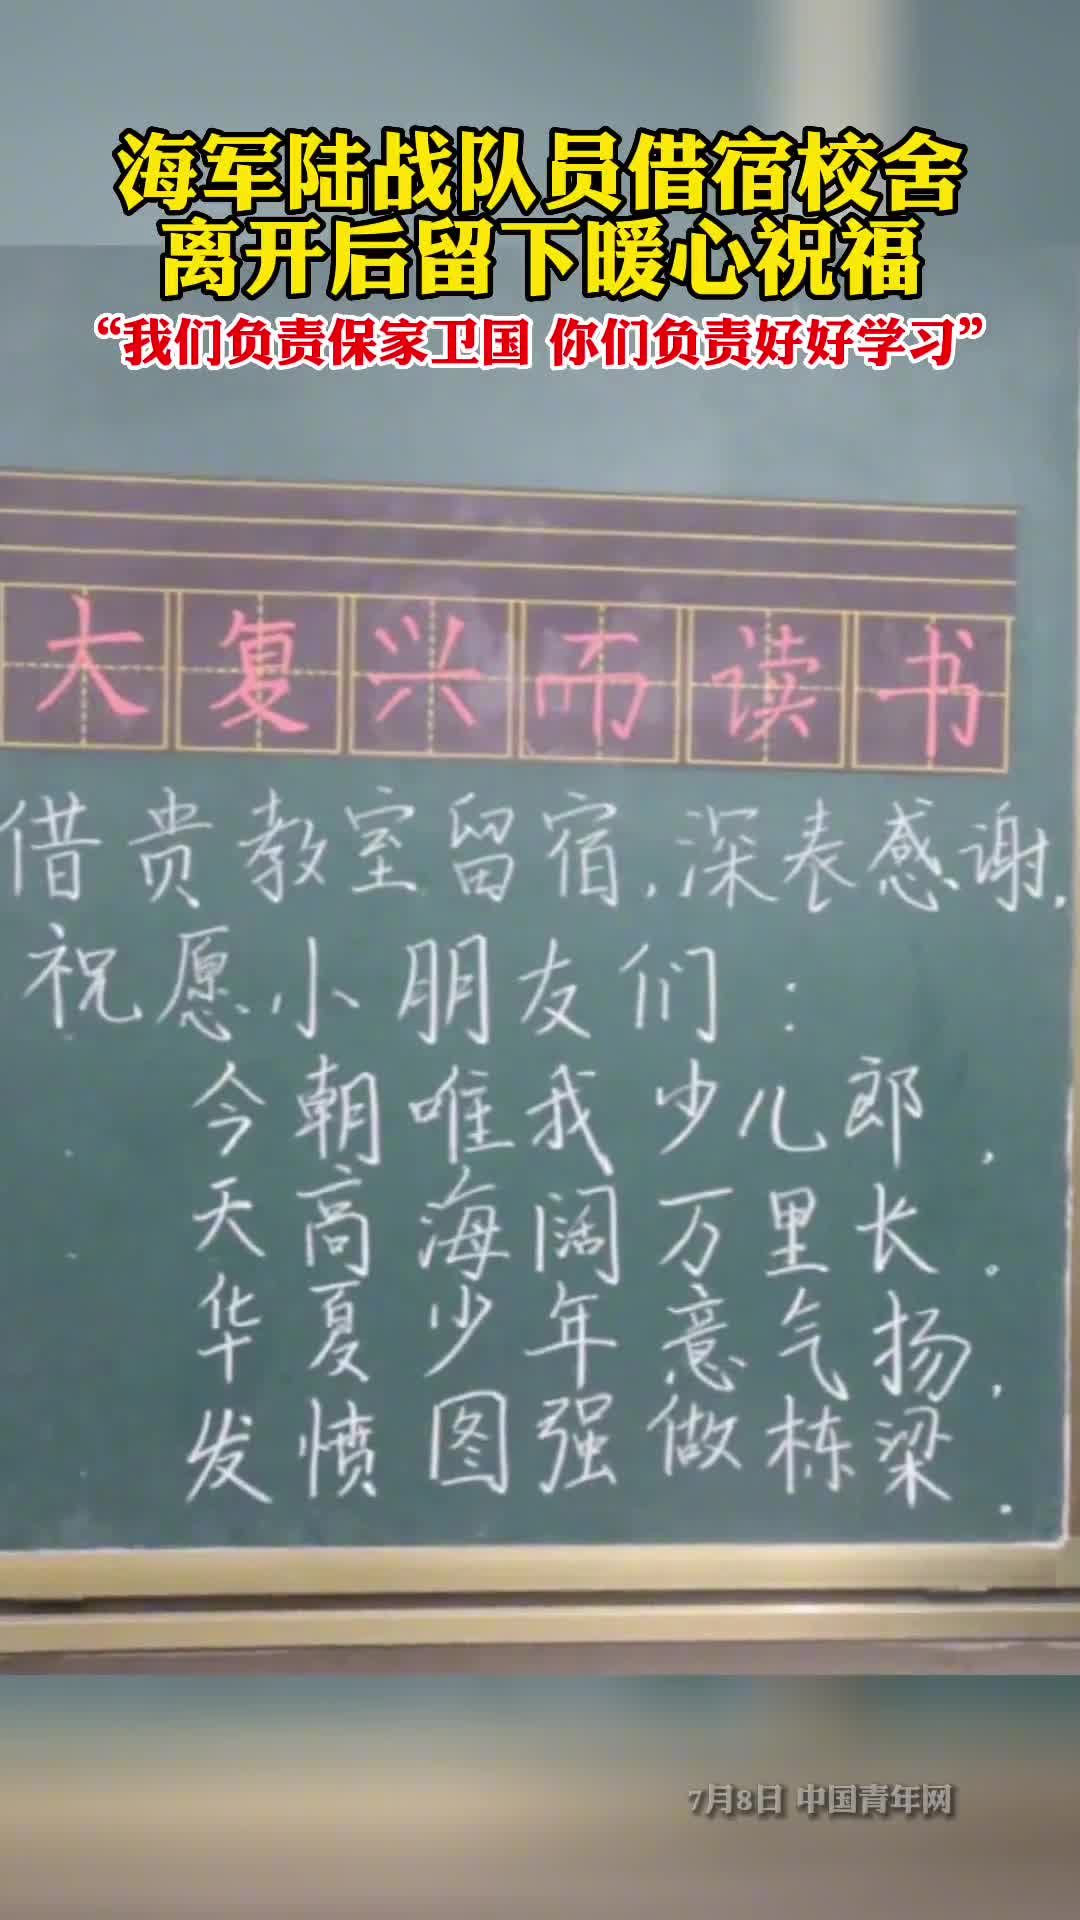 海军陆战队员借宿校舍
离开后留下暖心祝福
“我们负责保家卫国 你们负责好好学习”
大复兴而读书
借贵教室留宿,深表感谢,
祝愿小朋友们:
今朝唯我少儿郎,
天高海阔万里长.
华夏少年意气扬,
发愤图强做栋梁.
7月8日 中国青年网